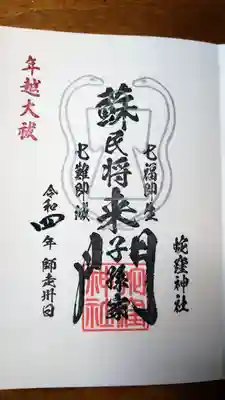 蛇窪神社
七福即生
蘇民将来子孫家門
七難即滅
年越大祓
令和四年 師走卅日
蛇窪神社